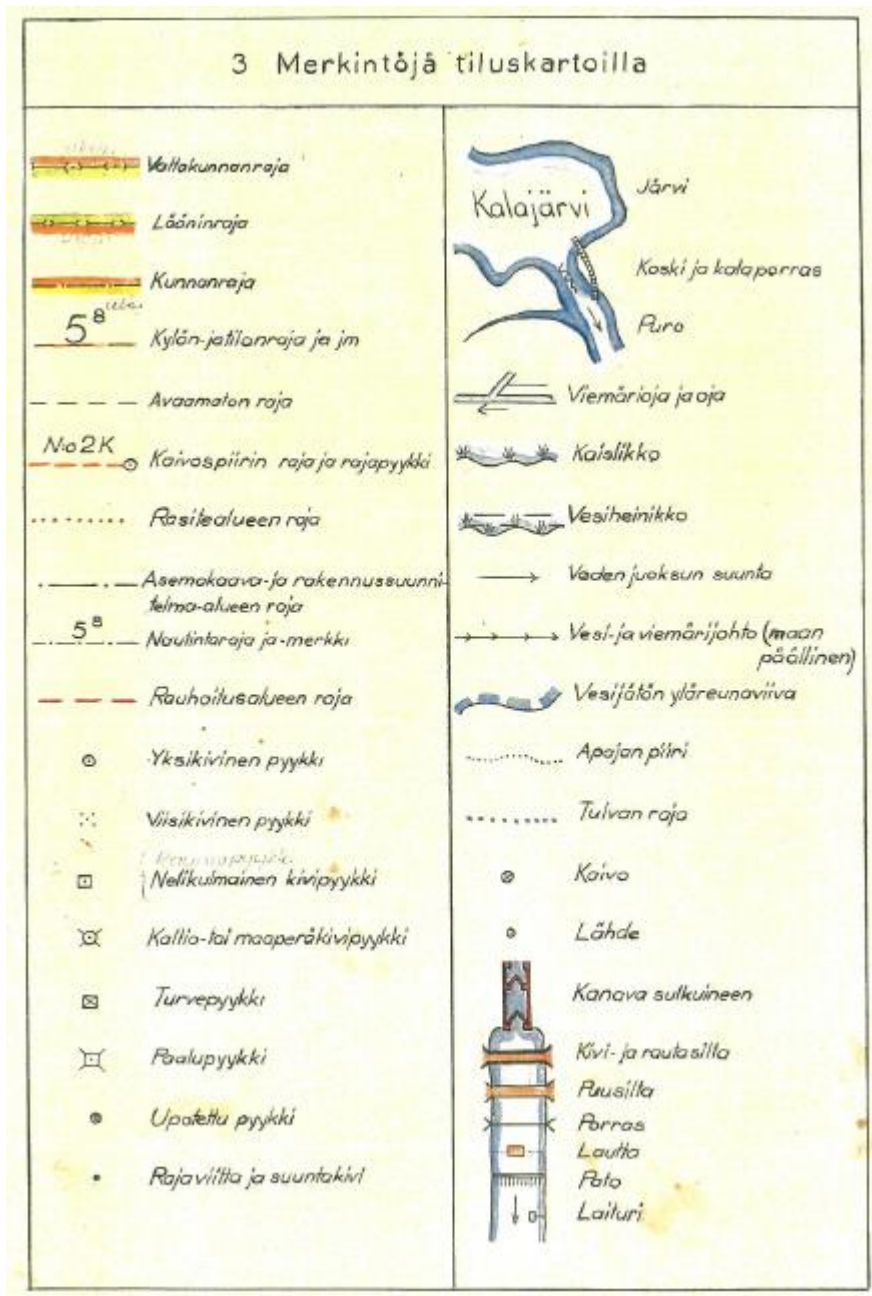 3 Merkintöjä tiluskartoilla
Valtakunnanraja
Lääninraja
Kunnanraja
5⁸
Kylän- ja tilanraja ja jm
Avaamaton raja
N:o 2K
Kaivospiirin raja ja rajapyykki
Rasitealueen raja
Asemakaava- ja rakennussuunni-
telma-alueen raja
5⁸
Nautintaraja ja -merkki
Rauhoitusalueen raja
Yksikivinen pyykki
Viisikivinen pyykki
Nelikulmainen kivipyykki
Kallio- tai maaperäkivipyykki
Turvepyykki
Paalupyykki
Upotettu pyykki
Rajaviitta ja suuntakivi
Kalajärvi
Järvi
Koski ja kalaporras
Puro
Viemärioja ja oja
Kaislikko
Vesiheinikko
Veden juoksun suunta
Vesi- ja viemärijohto (maan
päällinen)
Vesijätön yläreunaviiva
Apajan piiri
Tulvan raja
Kaivo
Lähde
Kanava sulkuineen
Kivi- ja rautasilta
Puusilta
Porras
Lautta
Pato
Laituri